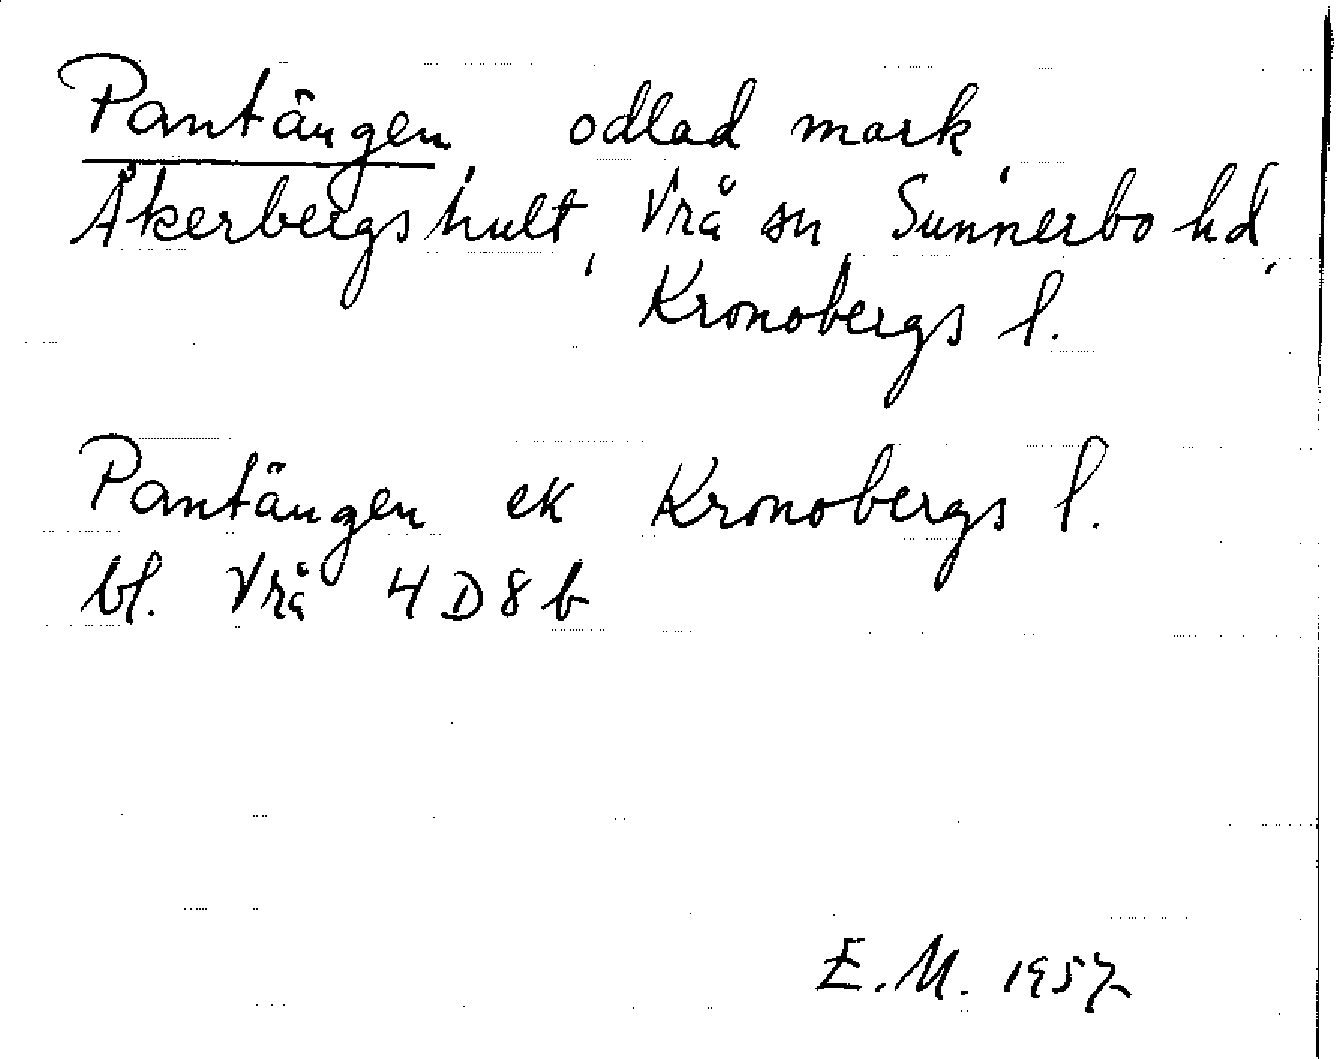 Pantängen, odlad mark,
Åkerbergshult, Vrå sn, Sunnerbo hd,
Kronobergs l.
Pantängen ek Kronobergs l.
bl. Vrå 4 D 8 b
E.M. 1957